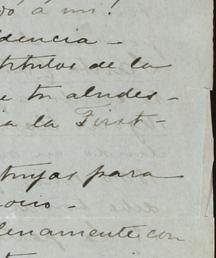 dó á mi!
idencia -
títulos de la
e tu aludes -
ia la First -
tuyas para
lenamente con